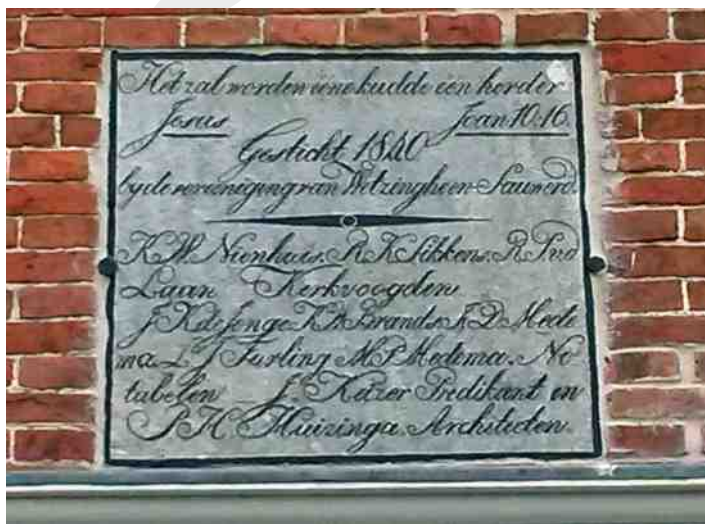 Het zal worden eene kudde een herder
Jesus Joan. 10:16.
Gesticht 1840
by de vereeniging van Wetzinghe en Sauwerd.
K. W. Nienhuis. R. K. Sikkens. R. P. vd
Laan Kerkvoogden
J. K. de Jonge. K. A. Brands. A. D. Mede
ma. L. J. Furling M. P. Medema. No
tabelen J. Keizer Predikant en
P. H. Huizinga. Architecten.